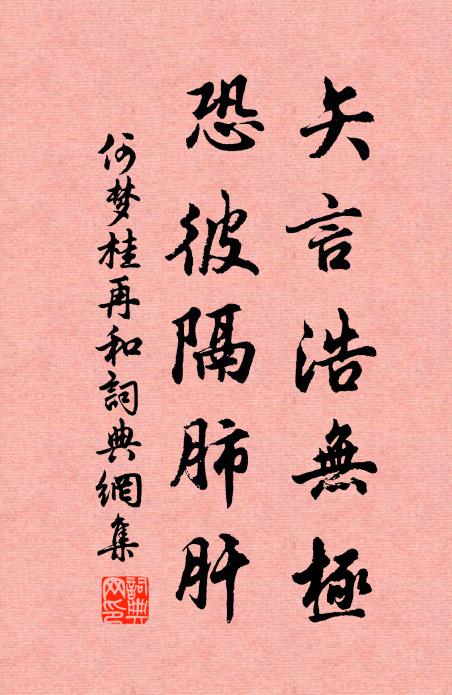 矢言浩無極
恐彼隔肺肝
何梦桂再和詞典網集
詞典網印